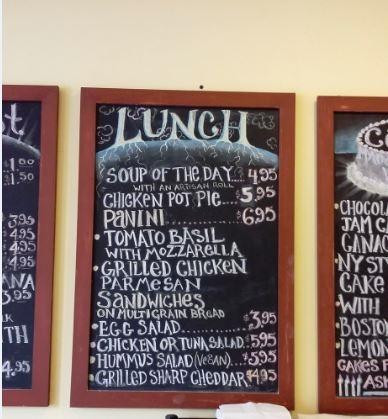 st
$1.00
$1.50
3.95
4.95
4.95
4.95
ANA
3.95
LK
TH
4.95
LUNCH
SOUP OF THE DAY.... $4.95
WITH AN ARTISAN ROLL
CHICKEN POT PIE... $5.95
PANINI........ $6.95
• TOMATO BASIL
WITH MOZZARELLA
• GRILLED CHICKEN
PARMESAN
SANDWICHES
ON MULTIGRAIN BREAD
• EGG SALAD........ $3.95
• CHICKEN OR TUNA SALAD.. $5.95
• HUMMUS SALAD (VEGAN)... $5.95
• GRILLED SHARP CHEDDAR. $4.95
• CHOCOLA
JAM CA
GANAC
• NY STY
CAKE
• WITH
• BOSTO
• LEMON
CAKES F
ASK